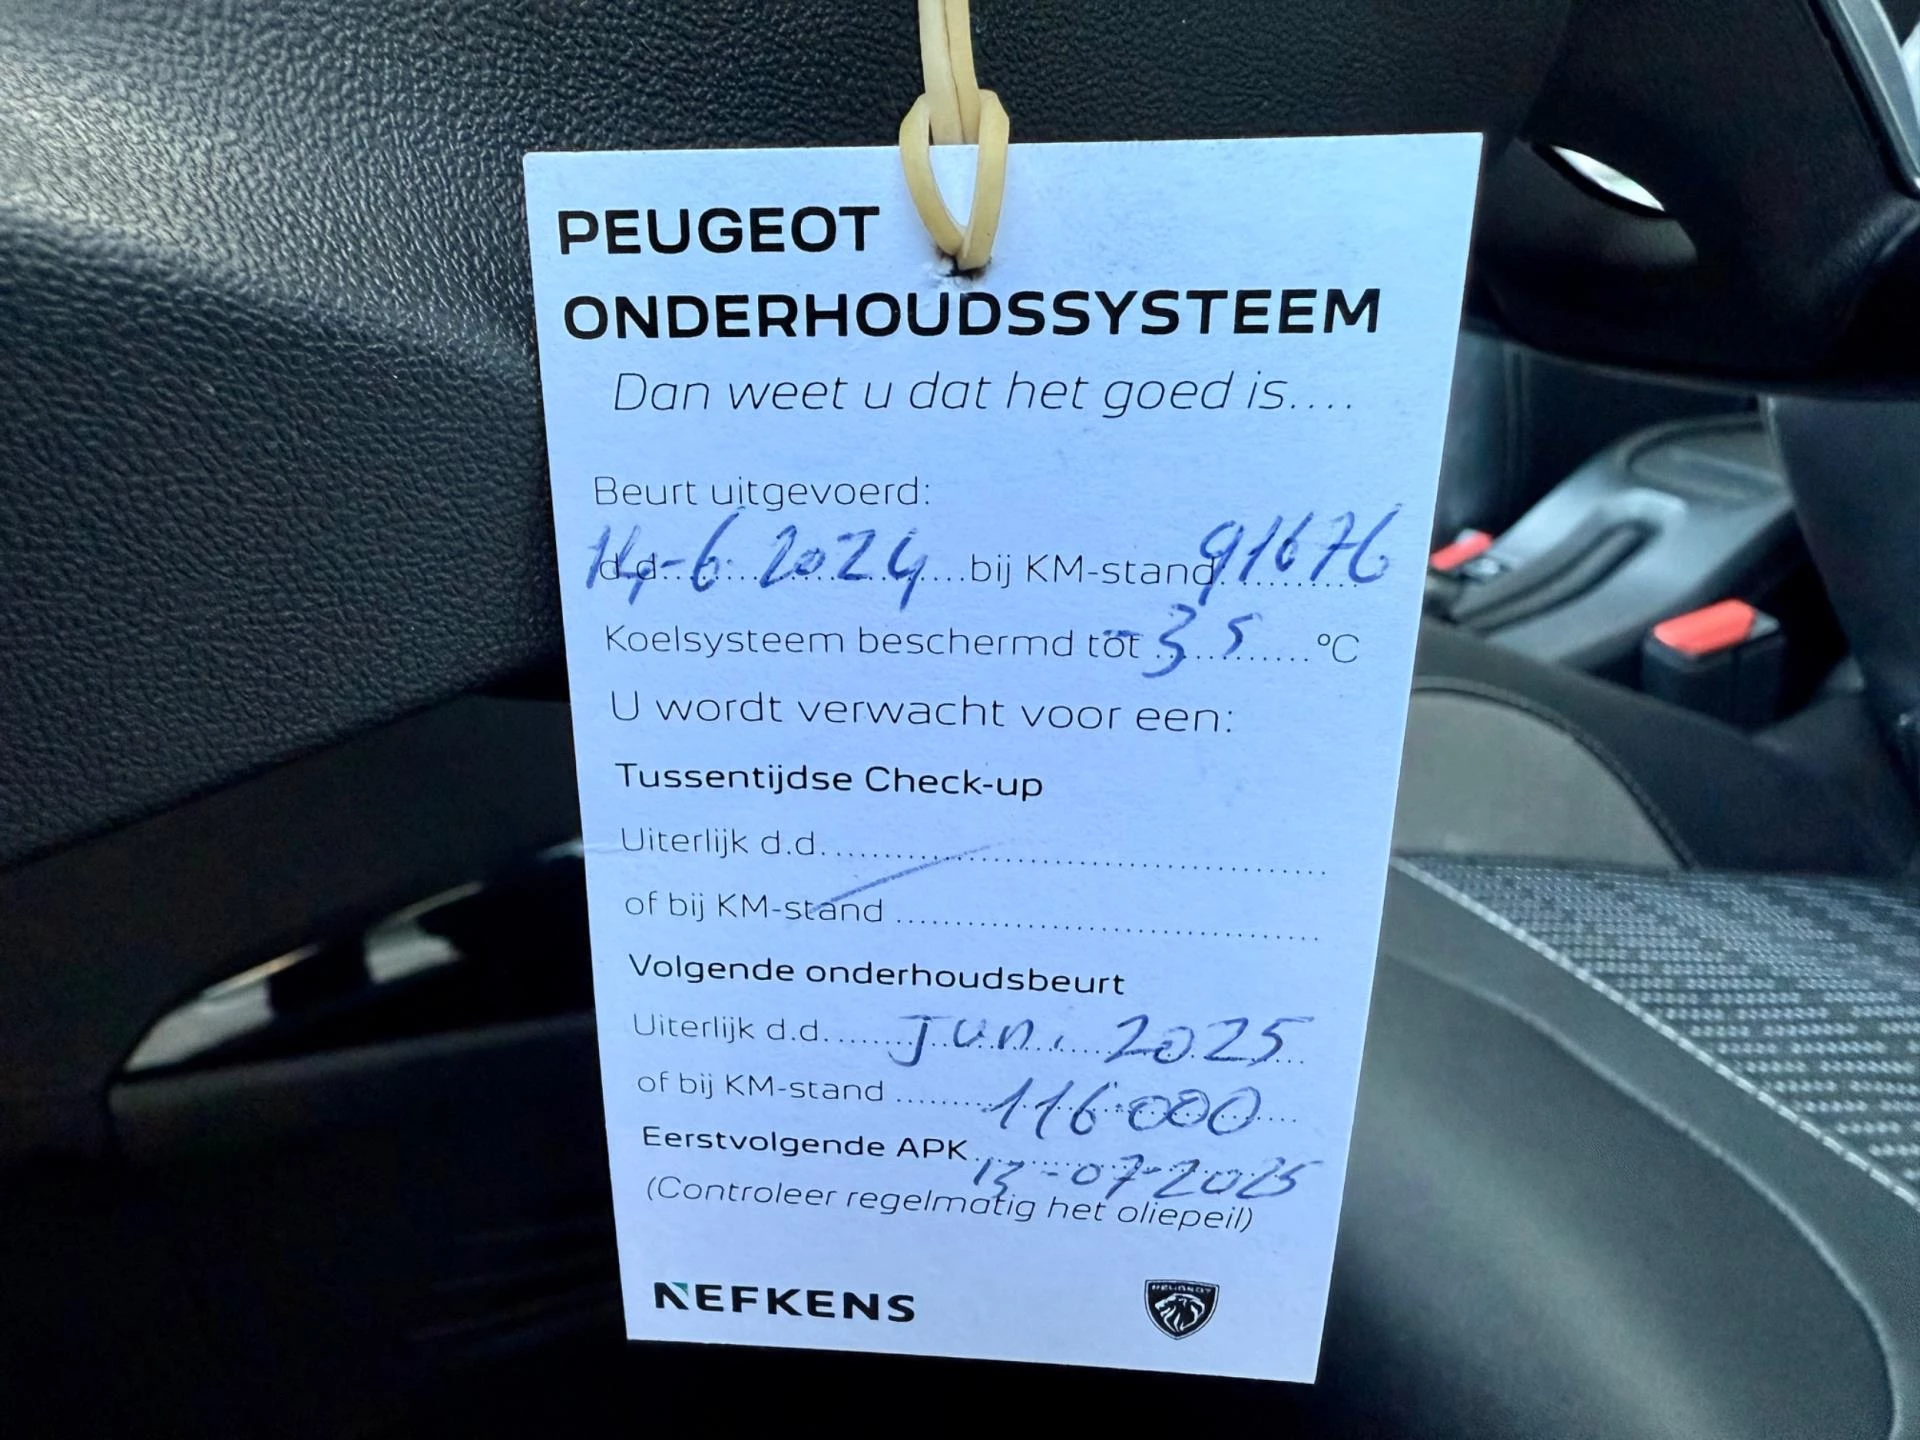 PEUGEOT
ONDERHOUDSSYSTEEM
Dan weet u dat het goed is....
Beurt uitgevoerd:
d.d. 14-6 2024 bij KM-stand 91676
Koelsysteem beschermd tot -35 °C
U wordt verwacht voor een:
Tussentijdse Check-up
Uiterlijk d.d.
of bij KM-stand
Volgende onderhoudsbeurt
Uiterlijk d.d. juni 2025
of bij KM-stand 116000
Eerstvolgende APK 13-07-2025
(Controleer regelmatig het oliepeil)
NEFKENS
PEUGEOT